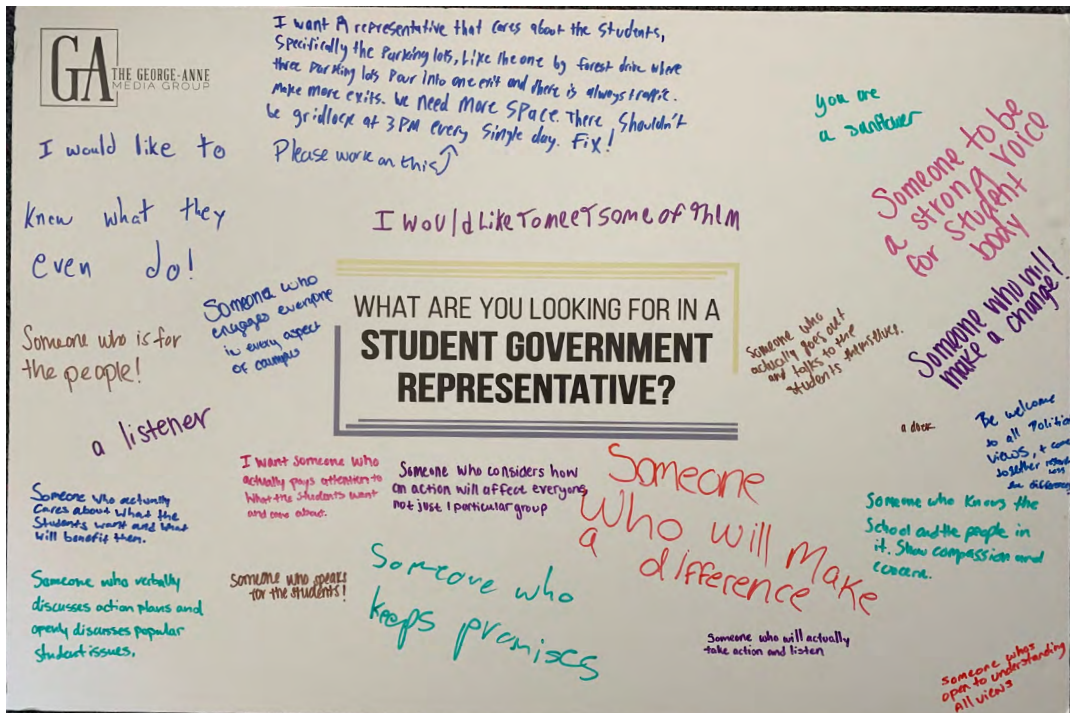 GA THE GEORGE-ANNE
MEDIA GROUP
I want A representative that cares about the Students,
Specifically the Parking lots, Like the one by forest drive where
three Parking lots Pour into one exit and there is always traffic.
Make more exits. We need More SPace. There Shouldn't
be gridlock at 3PM every Single day. Fix!
Please work on this
you are
a sunflower
I would like to
Know what they
even do!
I WoUld Like To meeT some of Them
Someone to be
a strong voice
for student
body
Someone who
engages everyone
in every aspect
of campus
WHAT ARE YOU LOOKING FOR IN A
STUDENT GOVERNMENT
REPRESENTATIVE?
Someone who
actually goes out
and talks to the
students themselves.
Someone who will
make a change!
Someone who is for
the people!
a listener
a dork
Be welcome
to all Politic
views, + come
together
differen
I want someone who
actually pays attention to
what the students want
and care about.
Someone who considers how
an action will affect everyone,
not just 1 particular group
Someone
Who will Make
a difference
Someone who actually
Cares about What the
Students want and what
will benefit them.
Someone who knows the
School and the people in
it. Show compassion and
concern.
Someone who verbally
discusses action plans and
openly discusses popular
student issues.
Someone who speaks
for the students!
Someone who
keeps promises
Someone who will actually
take action and listen
someone whos
open to understanding
All views